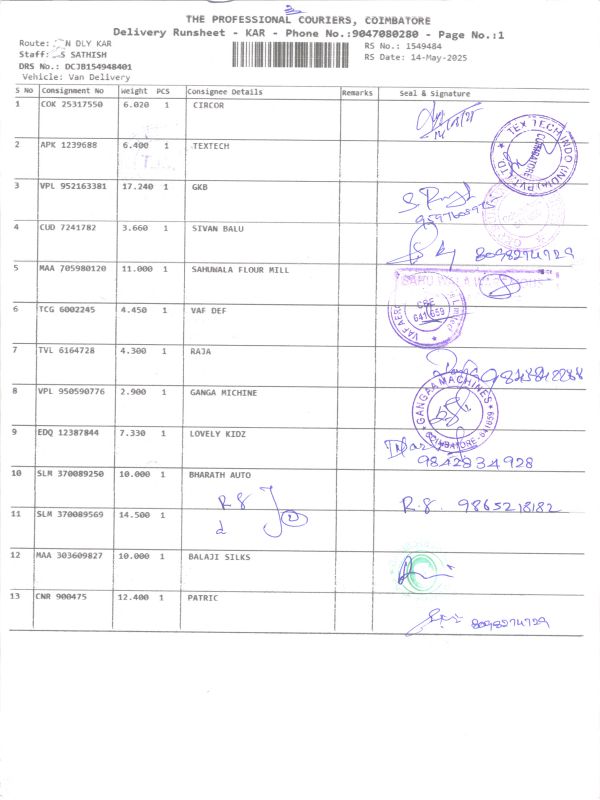 THE PROFESSIONAL COURIERS, COIMBATORE
Delivery Runsheet - KAR - Phone No.:9047080280 - Page No.:1
Route: N DLY KAR
RS No.: 1549484
Staff: S SATHISH
RS Date: 14-May-2025
DRS No.: DCJB154948401
Vehicle: Van Delivery
S No Consignment No Weight PCS Consignee Details Remarks Seal & Signature
1 COK 25317550 6.020 1 CIRCOR
2 APK 1239688 6.400 1 TEXTECH
TEX TECH INDO (INDIA) PVT. LTD. COIMBATORE
3 VPL 952163381 17.240 1 GKB
4 CUD 7241782 3.660 1 SIVAN BALU
8098274729
5 MAA 705980120 11.000 1 SAHUWALA FLOUR MILL
6 TCG 6002245 4.450 1 VAF DEF
VAF AERO CBE 641 659
7 TVL 6164728 4.300 1 RAJA
8 VPL 950590776 2.900 1 GANGA MICHINE
GANGAA MACHINES COIMBATORE-641059
9 EDQ 12387844 7.330 1 LOVELY KIDZ
9842834928
10 SLM 370089250 10.000 1 BHARATH AUTO
R.8. 9865218182
11 SLM 370089569 14.500 1
12 MAA 303609827 10.000 1 BALAJI SILKS
13 CNR 900475 12.400 1 PATRIC
8098274729